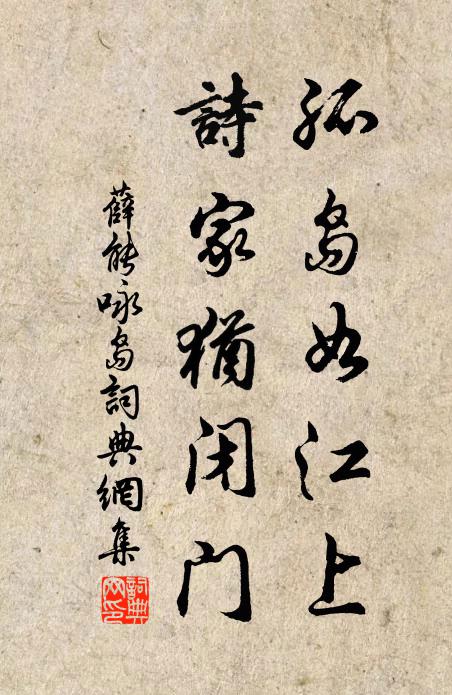 孤島如江上
詩家猶閉門
薛能詠島詞典網集
詞典
网印